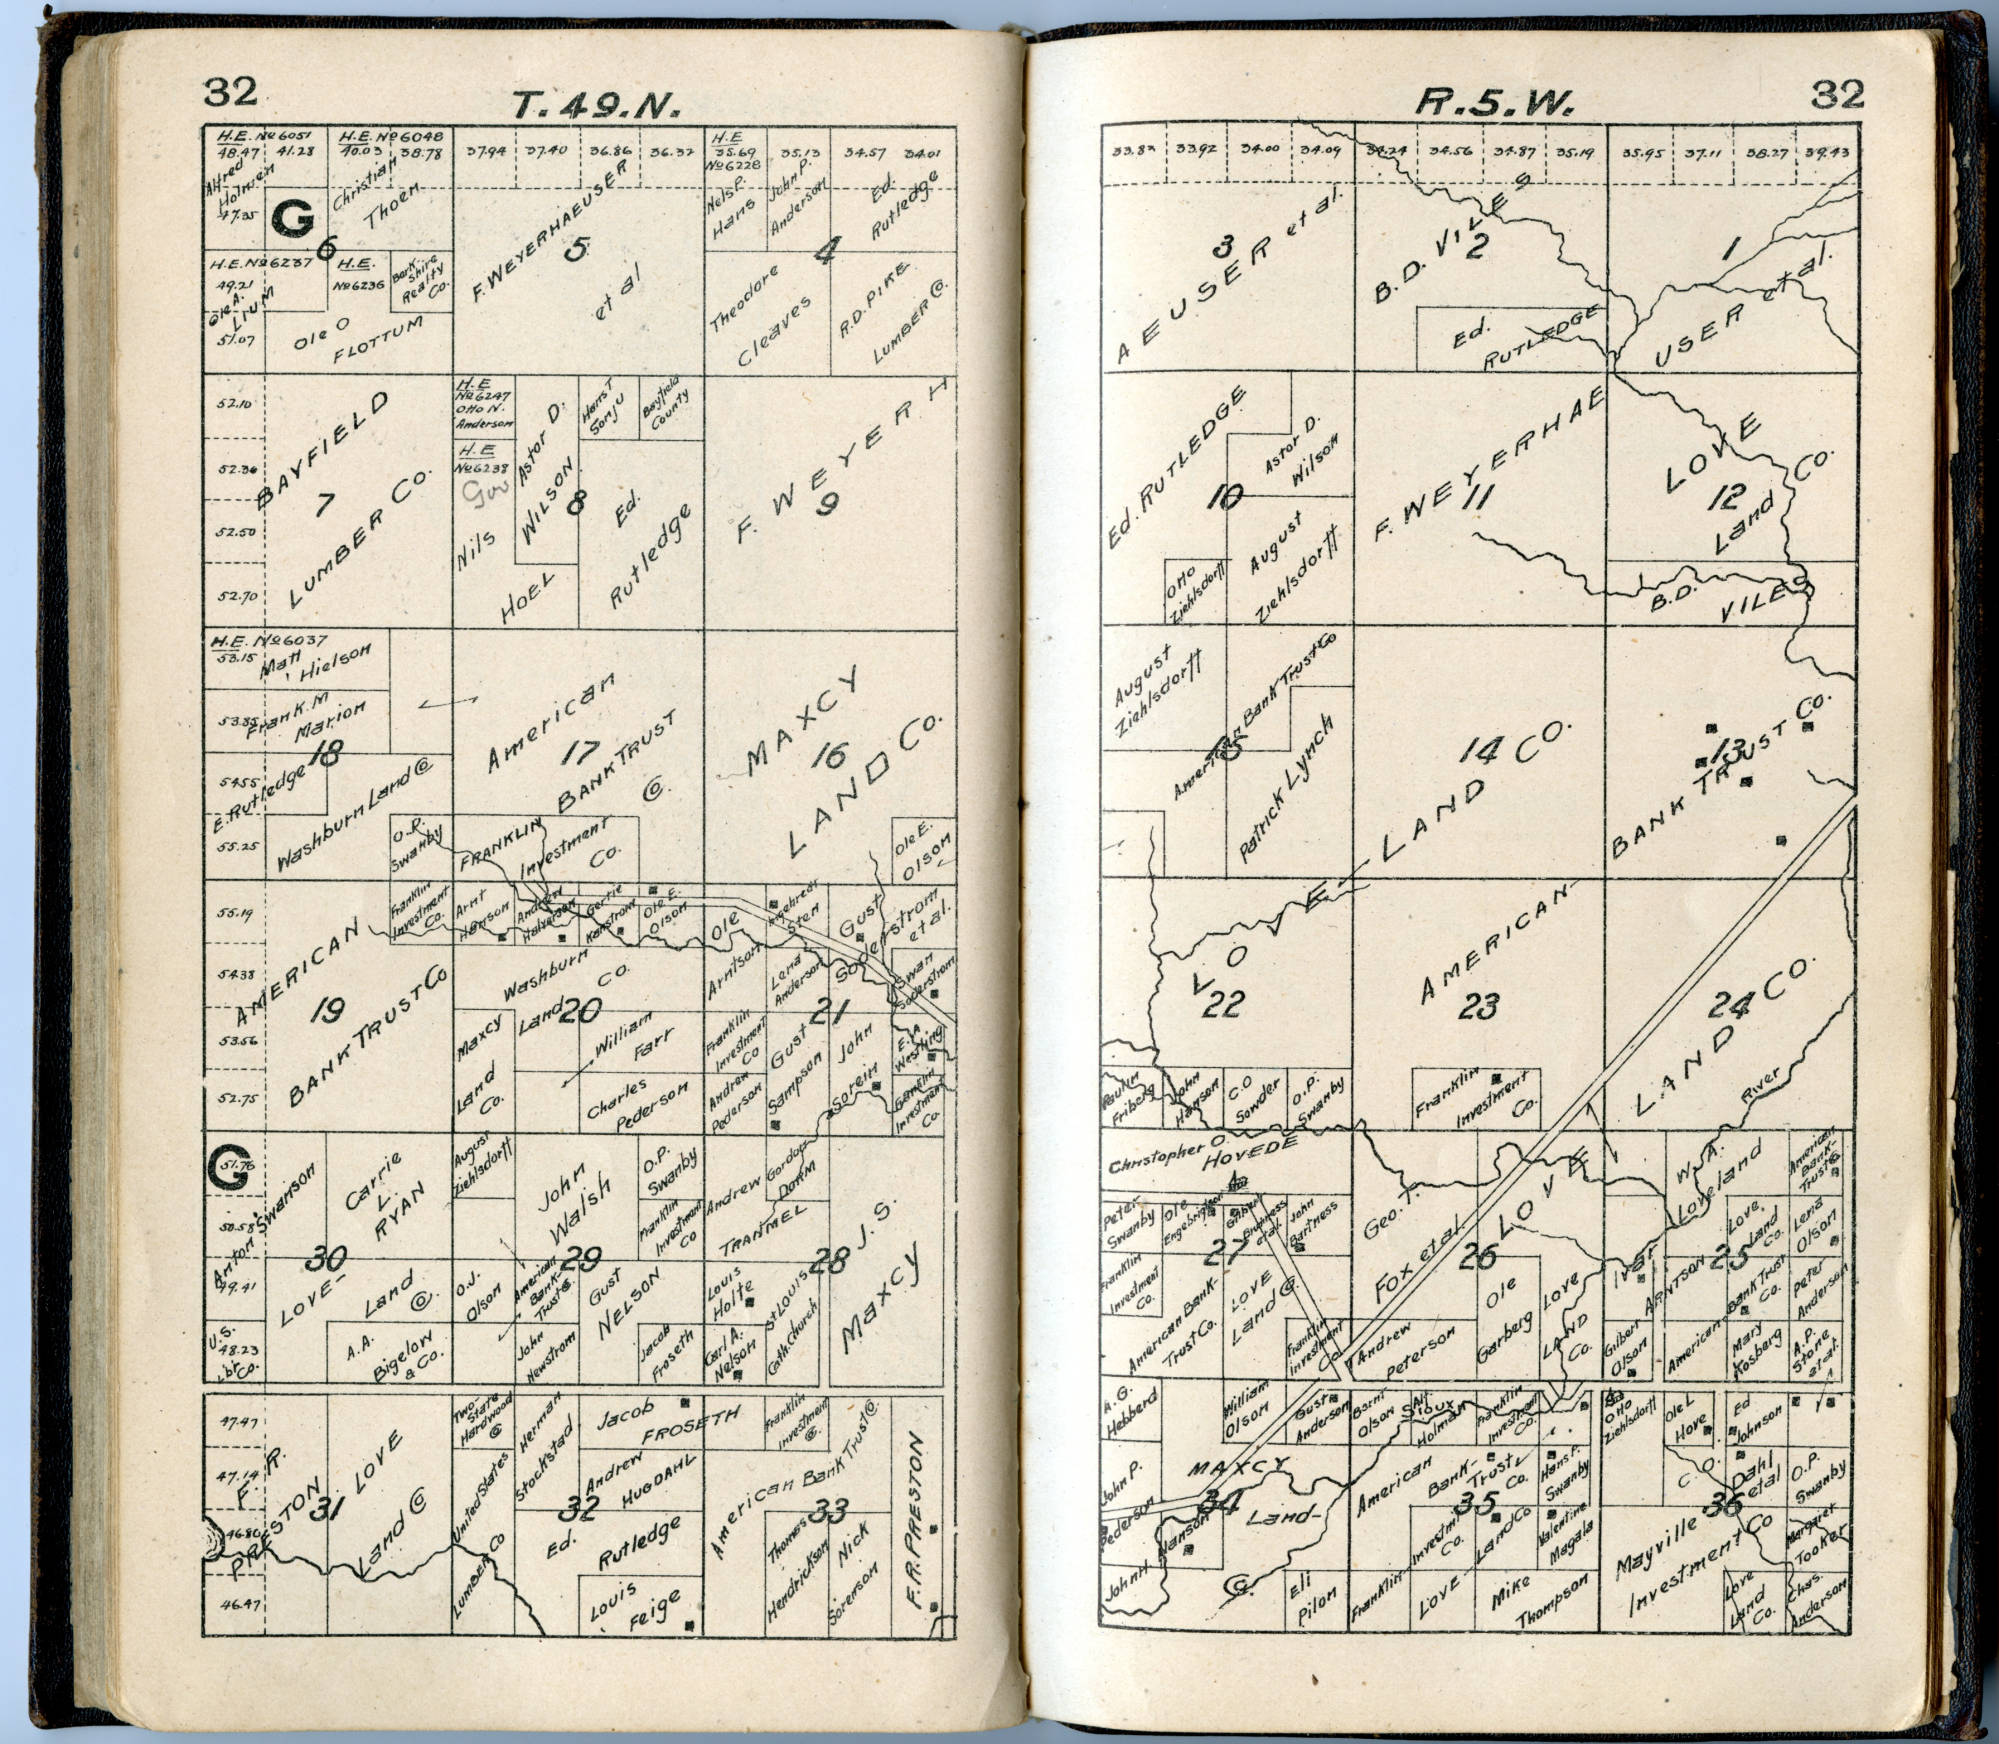 32
T. 49. N.
H.E. No 6051
48.47
41.28
H.E. No 6048
40.03
38.78
37.94
37.40
36.86
36.32
H.E
35.69
No 6228
35.13
34.57
34.01
Alfred
Holmen
47.35
G
Christian
Thoen
6
H.E. No 6237
49.21
Ole A.
LIUM
51.07
H.E.
No 6236
Bark-
shire
Realty
Co.
Ole O
FLOTTUM
F. WEYERHAEUSER
5
et al
Nels P.
Hans
John P.
Anderson
Ed.
Rutledge
4
Theodore
Cleaves
R.D. PIKE
LUMBER Co.
52.10
52.30
52.50
52.70
BAYFIELD
7
LUMBER Co.
H.E
No 6247
Otto N.
Anderson
H.E
No 6238
Gov
Nils
HOEL
Astor D.
WILSON
8
Hans T
Sonju
Bayfield
County
Ed.
Rutledge
F. WEYERH
9
H.E. No 6037
53.15
Matt
Hielson
53.85
Frank. M
Marion
18
54.55
E. Rutledge
55.25
Washburn Land Co
O.P.
Swanby
American
17
BANK TRUST
Co.
FRANKLIN
Investment
Co.
MAXCY
16
LAND Co.
Ole E.
OLSON
55.19
54.38
53.56
52.75
AMERICAN
19
BANK TRUST Co
Franklin
Investment
Co.
Arnt
Hanson
Andrew
Halvorson
Gertie
Kanstrom
Ole E.
Olson
Washburn
Co.
Land
20
Maxcy
Land
Co.
William
Farr
Charles
Pederson
Ole
Arntson
Sten
Gust
Soderstrom
et al.
Lena
Anderson
Swan
Soderstrom
21
Franklin
Investment
Co
Andrew
Pederson
Gust
Sampson
John
Sorein
E.A.
Westling
Franklin
Investment
Co.
G
51.76
50.58
49.41
Anton Swanson
Carrie
L.
RYAN
30
LOVE-
Land
Co.
U.S.
48.23
Lbr
Co.
A.A.
Bigelow
& Co.
August
Ziehlsdorff
John
Walsh
O.P.
Swanby
Franklin
Investment
Co
29
O.J.
Olson
American
Bank-
Trust Co.
John
Newstrom
Gust
NELSON
Jacob
Froseth
Andrew
TRANMEL
Gordon
Donm
28
J.S.
Maxcy
Louis
Holte
Carl A.
Nelson
St Louis
Cath. Church
47.47
47.14
46.80
46.47
F.R.
PRESTON
31
LOVE
Land Co
Two
State
Hardwood
Co
United States
LUMBER Co
Herman
Stockstad
Jacob
FROSETH
Andrew
HUGDAHL
32
Ed.
Rutledge
Louis
Feige
Franklin
Investment
Co.
American Bank Trust Co
33
Thomas
Hendrickson
Nick
Sorenson
F.R. PRESTON
32
R. 5. W.
33.83
33.92
34.00
34.09
34.24
34.56
34.87
35.19
35.95
37.11
38.27
39.43
3
AEUSER et al.
B.D. VILES
2
Ed.
RUTLEDGE
1
USER et al.
Ed. RUTLEDGE
10
Astor D.
Wilson
Otto
Ziehlsdorff
August
Ziehlsdorff
F. WEYERHAE
11
LOVE
12
Land Co.
B.D.
VILES
August
Ziehlsdorff
American Bank Trust Co
15
Patrick Lynch
14
LAND CO.
13
BANK TRUST Co.
LOVE
22
Paul N
Friberg
John
Hanson
C.O
Sowder
O.P.
Swanby
AMERICAN-
23
Franklin
Investment
Co.
24
LAND CO.
River
Christopher O.
HOVEDE
Peter
Swanby
Ole
Engebrigtson
Gilbert
et al.
John
Bartness
27
Franklin
Investment
Co.
American Bank-
Trust Co.
LOVE
Land Co.
Franklin
Investment
Co
Geo. T.
Fox et al.
26
LOVE
Andrew
Peterson
Ole
Garberg
Love
LAND
Co.
W.A.
Loveland
American
Bank-
Trust Co
Love
Land
Co.
Lena
Olson
Ivar
ARNTSON
25
Gilbert
Olson
American
Bank Trust
Co.
Mary
Kosberg
Peter
Anderson
A.P.
Stone
et al.
A.G.
Hebberd
William
Olson
Gust
Anderson
John P.
Pederson
MAXCY
34
Land-
Co.
John H
Hanson
Eli
Pilon
Bernt
Olson
Alf.
Holman
Sioux
Franklin
Investment
Co.
American
Bank-
Trust
Co.
35
Hans P.
Swanby
Franklin
Investm't
Co.
LOVE-
Land Co
Valentine
Magala
Mike
Thompson
Otto
Ziehlsdorff
Ole L
Hove
Ed
Johnson
C.O.
Dahl
et al
O.P.
Swanby
36
Mayville
Investment Co
Margaret
Tooker
Love
Land
Co.
Chas.
Anderson